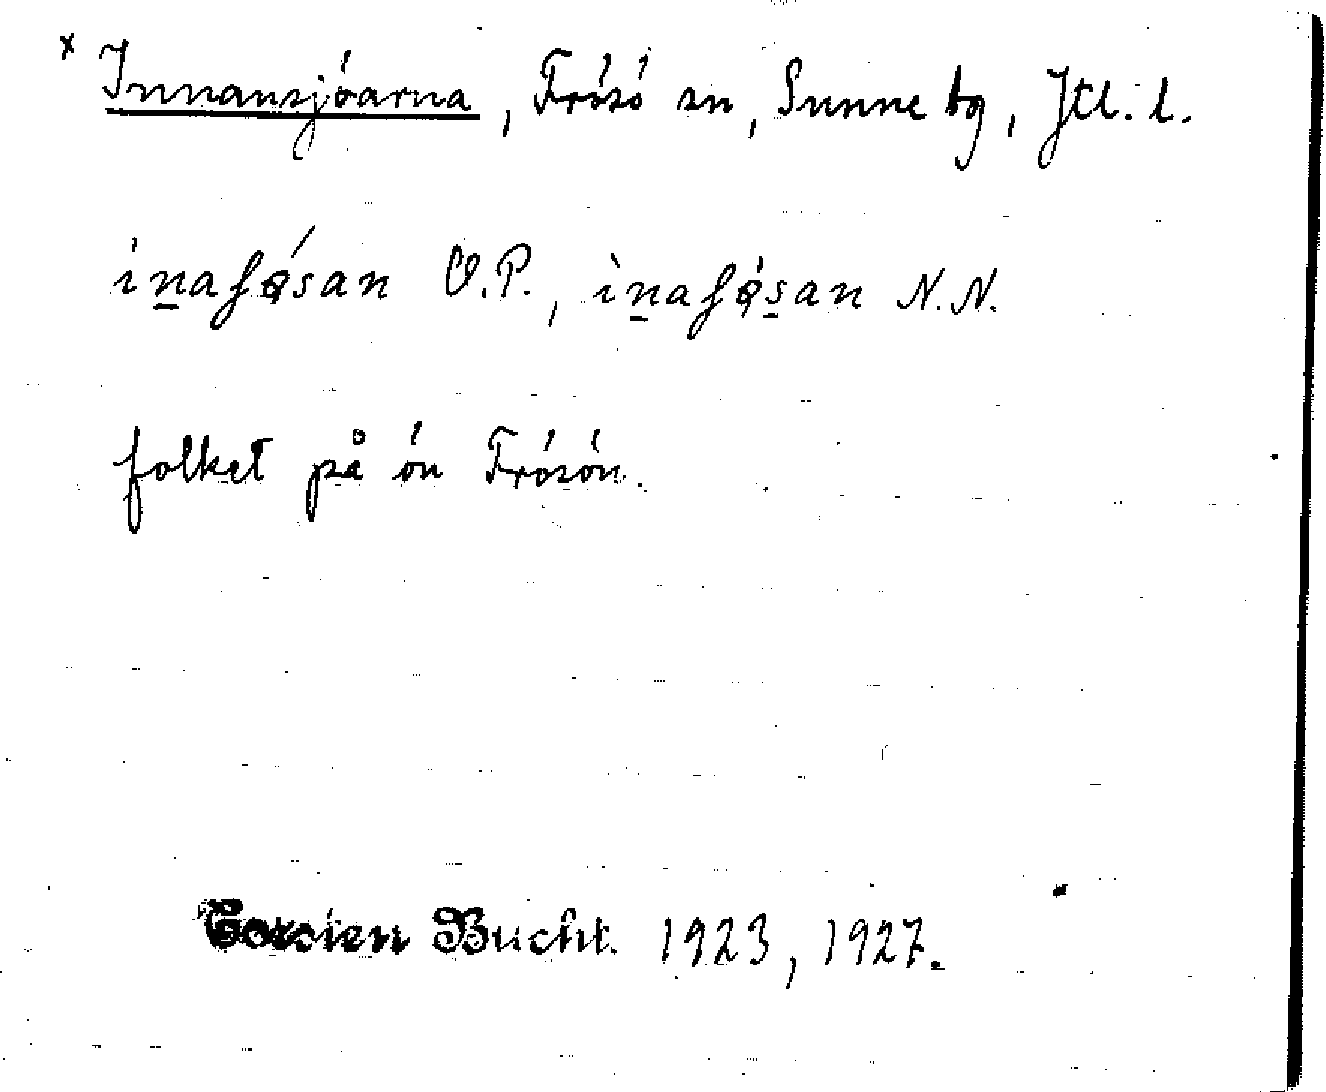 x Innansjóarna, Frósó sn, Sunne tg, Jtl. l.
ı̇n̲aʃǿsan O.P., ìn̲aʃǿs̲an N.N.
folket på ón Frósón.
Torsten Bucht. 1923, 1927.